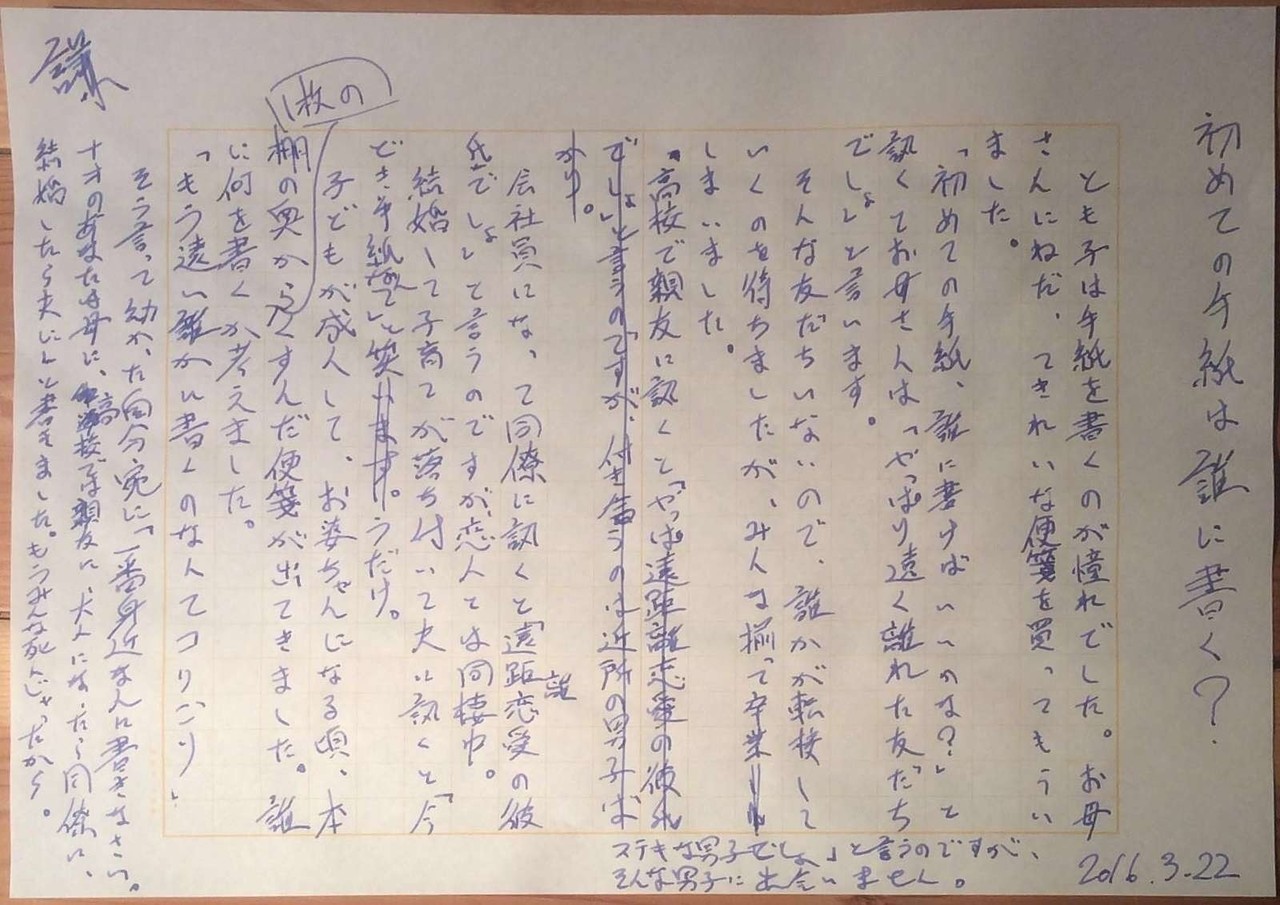 初めての手紙は誰に書く?
とも子は手紙を書くのが憧れでした。お母
さんにねだってきれいな便箋を買ってもらい
ました。
「初めての手紙、誰に書けばいいのな?」と
訊くてお母さんは「やっぱり遠く離れた友だち
でしょ」と言います。
そんな友だちいないので、誰かが転校して
いくのを待ちましたが、みんな揃って卒業し
しまいました。
高校で親友に訊くと「やっぱ遠距離恋愛の彼氏
でしょ」と言うのですが、付き合うのは近所の男子ば
かり。
ステキな男子でしょ」と言うのですが、
そんな男子に出会いません。
会社員になって同僚に訊くと「遠距恋愛の彼
氏でしょ」て言うのですが、恋人とは同棲中。
結婚して子育てが落ち付いて夫に訊くと「今
どき手紙なんて」と笑います。うだけ。
子どもが成人して、お婆ちゃんになる頃、本
棚の奥から1枚のくすんだ便箋が出てきました。誰
に何を書くか考えました。
「もう遠い誰かに書くのなんてコリゴリ」
そう言って幼かった自分宛に「一番身近な人に書きなさい。
十才のあなたは母に、高校では親友に、大人になったら同僚に、
結婚したら夫に」と書きました。もうみんな死んじゃったから。
2016.3.22